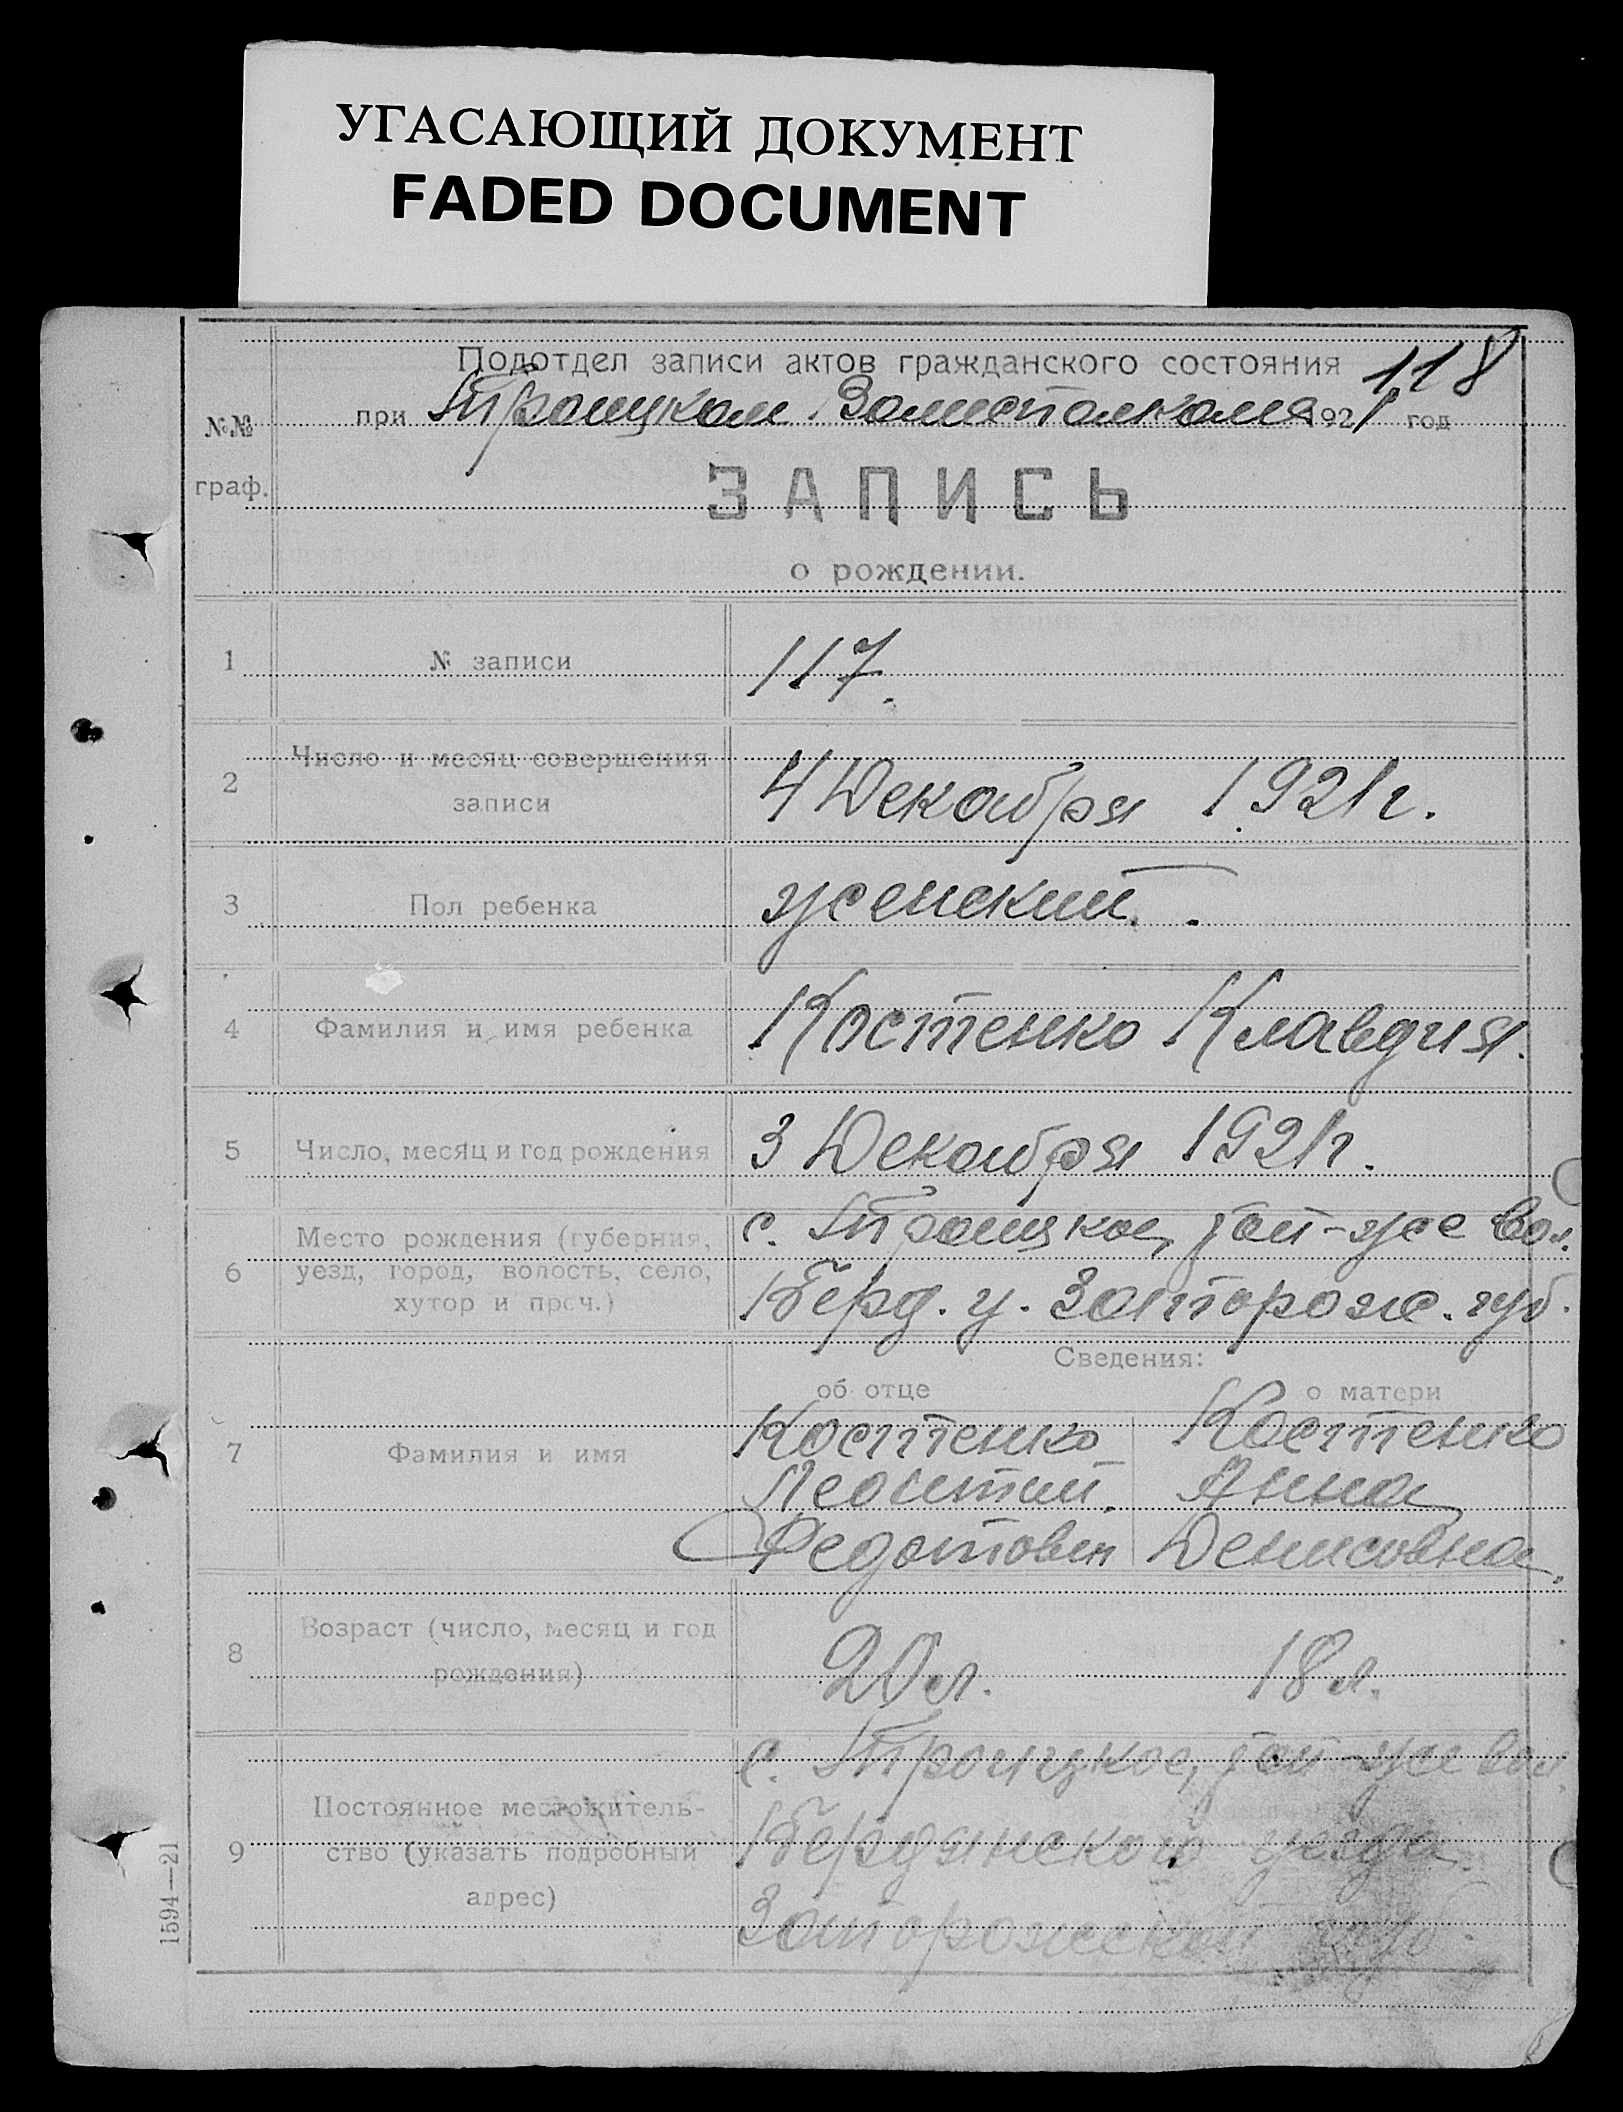 УГАСАЮЩИЙ ДОКУМЕНТ
FADED DOCUMENT
118
Подотдел записи актов гражданского состояния
при Троицком Волисполкоме 1921 год
№№
граф.
ЗАПИСЬ
о рождении.
1 № записи 117.
2 Число и месяц совершения
записи
4 Декабря 1921 г.
3 Пол ребенка женский.
4 Фамилия и имя ребенка Костенко Клавдия.
5 Число, месяц и год рождения 3 Декабря 1921 г.
6 Место рождения (губерния,
уезд, город, волость, село,
хутор и проч.)
с. Троицкое, той-же вол.
Берд. у. Запорож. губ.
Сведения:
об отце о матери
7 Фамилия и имя
Костенко Костенко
Леонтий. Анна
Федотович Денисовна.
8 Возраст (число, месяц и год
рождения)
20 л. 18 л.
9 Постоянное местожитель-
ство (указать подробный
адрес)
с. Троицкое, той-же вол.
Бердянского уезда
Запорожской губ.
1594—21